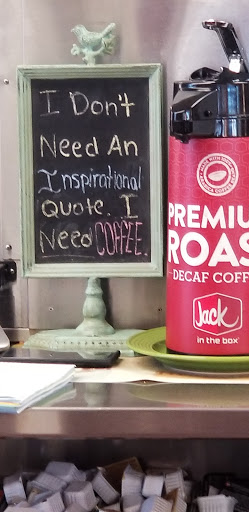 I Don't
Need An
Inspirational
Quote. I
Need COFFEE.
PREMIU
ROAS
DECAF COFF
Jack
in the box